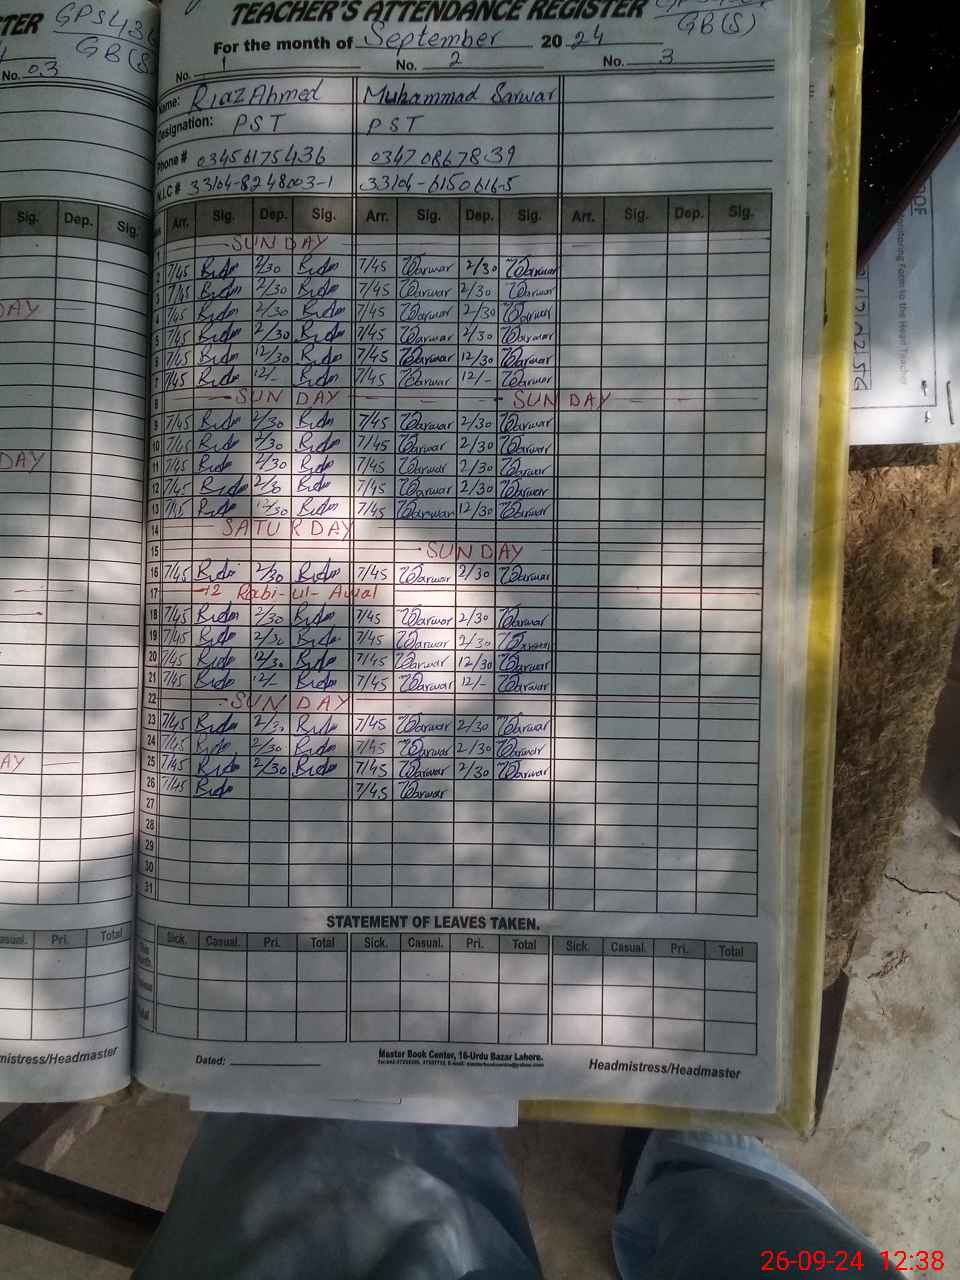 TER GPS 436
GB(S)
No. 03
TEACHER'S ATTENDANCE REGISTER
GB(S)
For the month of September 2024
No. 1 No. 2 No. 3
Name: Riaz Ahmed Muhammad Sarwar
Designation: PST PST
Phone # 03456175436 03470867839
N.I.C # 33104-8248003-1 33104-6150616-5
Sig. Dep. Sig. Arr. Sig. Dep. Sig. Arr. Sig. Dep. Sig. Arr. Sig. Dep. Sig.
1 SUNDAY
2 7/45 2/30 7/45 Sarwar 2/30 Sarwar
3 7/45 2/30 7/45 Sarwar 2/30 Sarwar
4 7/45 2/30 7/45 Sarwar 2/30 Sarwar
5 7/45 2/30 7/45 Sarwar 2/30 Sarwar
6 7/45 12/30 7/45 Sarwar 12/30 Sarwar
7 7/45 12/- 7/45 Sarwar 12/- Sarwar
8 SUNDAY SUNDAY
9 7/45 2/30 7/45 Sarwar 2/30 Sarwar
10 7/45 2/30 7/45 Sarwar 2/30 Sarwar
11 7/45 2/30 7/45 Sarwar 2/30 Sarwar
12 7/45 2/30 7/45 Sarwar 2/30 Sarwar
13 7/45 12/30 7/45 Sarwar 12/30 Sarwar
14 SATURDAY
15 SUNDAY
16 7/45 2/30 7/45 Sarwar 2/30 Sarwar
17 12 Rabi-ul-Awal
18 7/45 2/30 7/45 Sarwar 2/30 Sarwar
19 7/45 2/30 7/45 Sarwar 2/30 Sarwar
20 7/45 12/30 7/45 Sarwar 12/30 Sarwar
21 7/45 12/- 7/45 Sarwar 12/- Sarwar
22 SUNDAY
23 7/45 2/30 7/45 Sarwar 2/30 Sarwar
24 7/45 2/30 7/45 Sarwar 2/30 Sarwar
25 7/45 2/30 7/45 Sarwar 2/30 Sarwar
26 7/45 7/45 Sarwar
27
28
29
30
31
STATEMENT OF LEAVES TAKEN.
Casual. Pri. Total Sick. Casual. Pri. Total Sick. Casual. Pri. Total Sick. Casual. Pri. Total
Total
Master Book Center, 16-Urdu Bazar Lahore.
mistress/Headmaster Dated: Headmistress/Headmaster
Monitoring Form to the Head Teacher
26-09-24 12:38